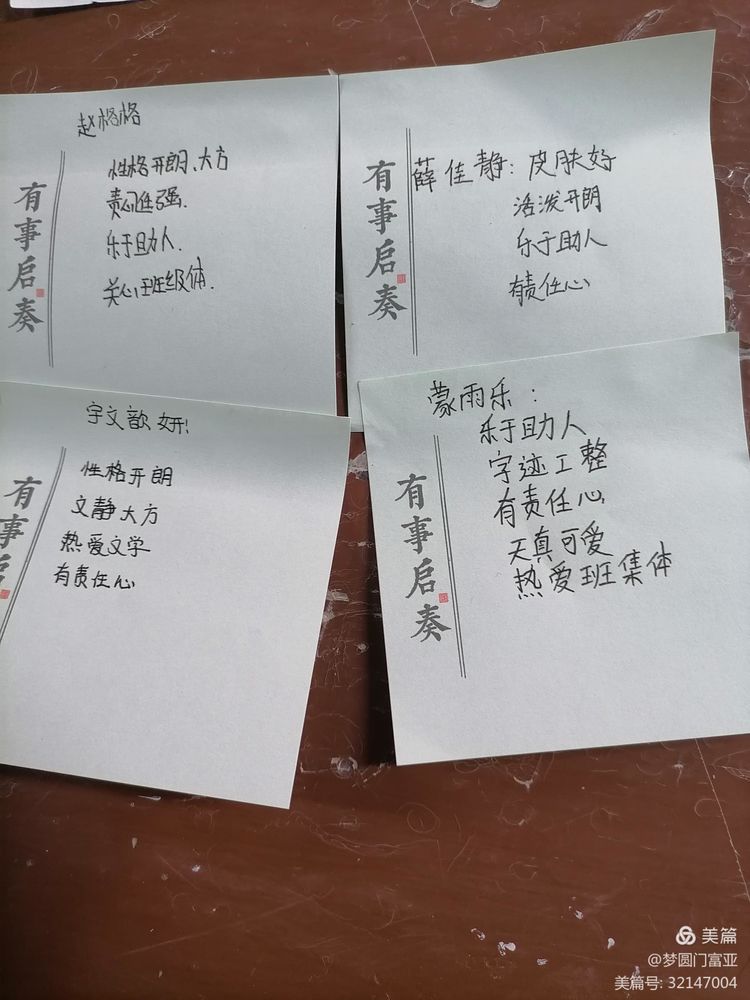 赵格格
性格开朗、大方
责任强.
乐于助人.
关心班级体.
有事启奏
薛佳静：皮肤好
活泼开朗
乐于助人
有责任心
有事启奏
宇文歆妍！
性格开朗
文静大方
热爱文学
有责任心
有事启奏
蒙雨乐：
乐于助人
字迹工整
有责任心
天真可爱
热爱班集体
有事启奏
美篇
@梦圆门富亚
美篇号: 32147004